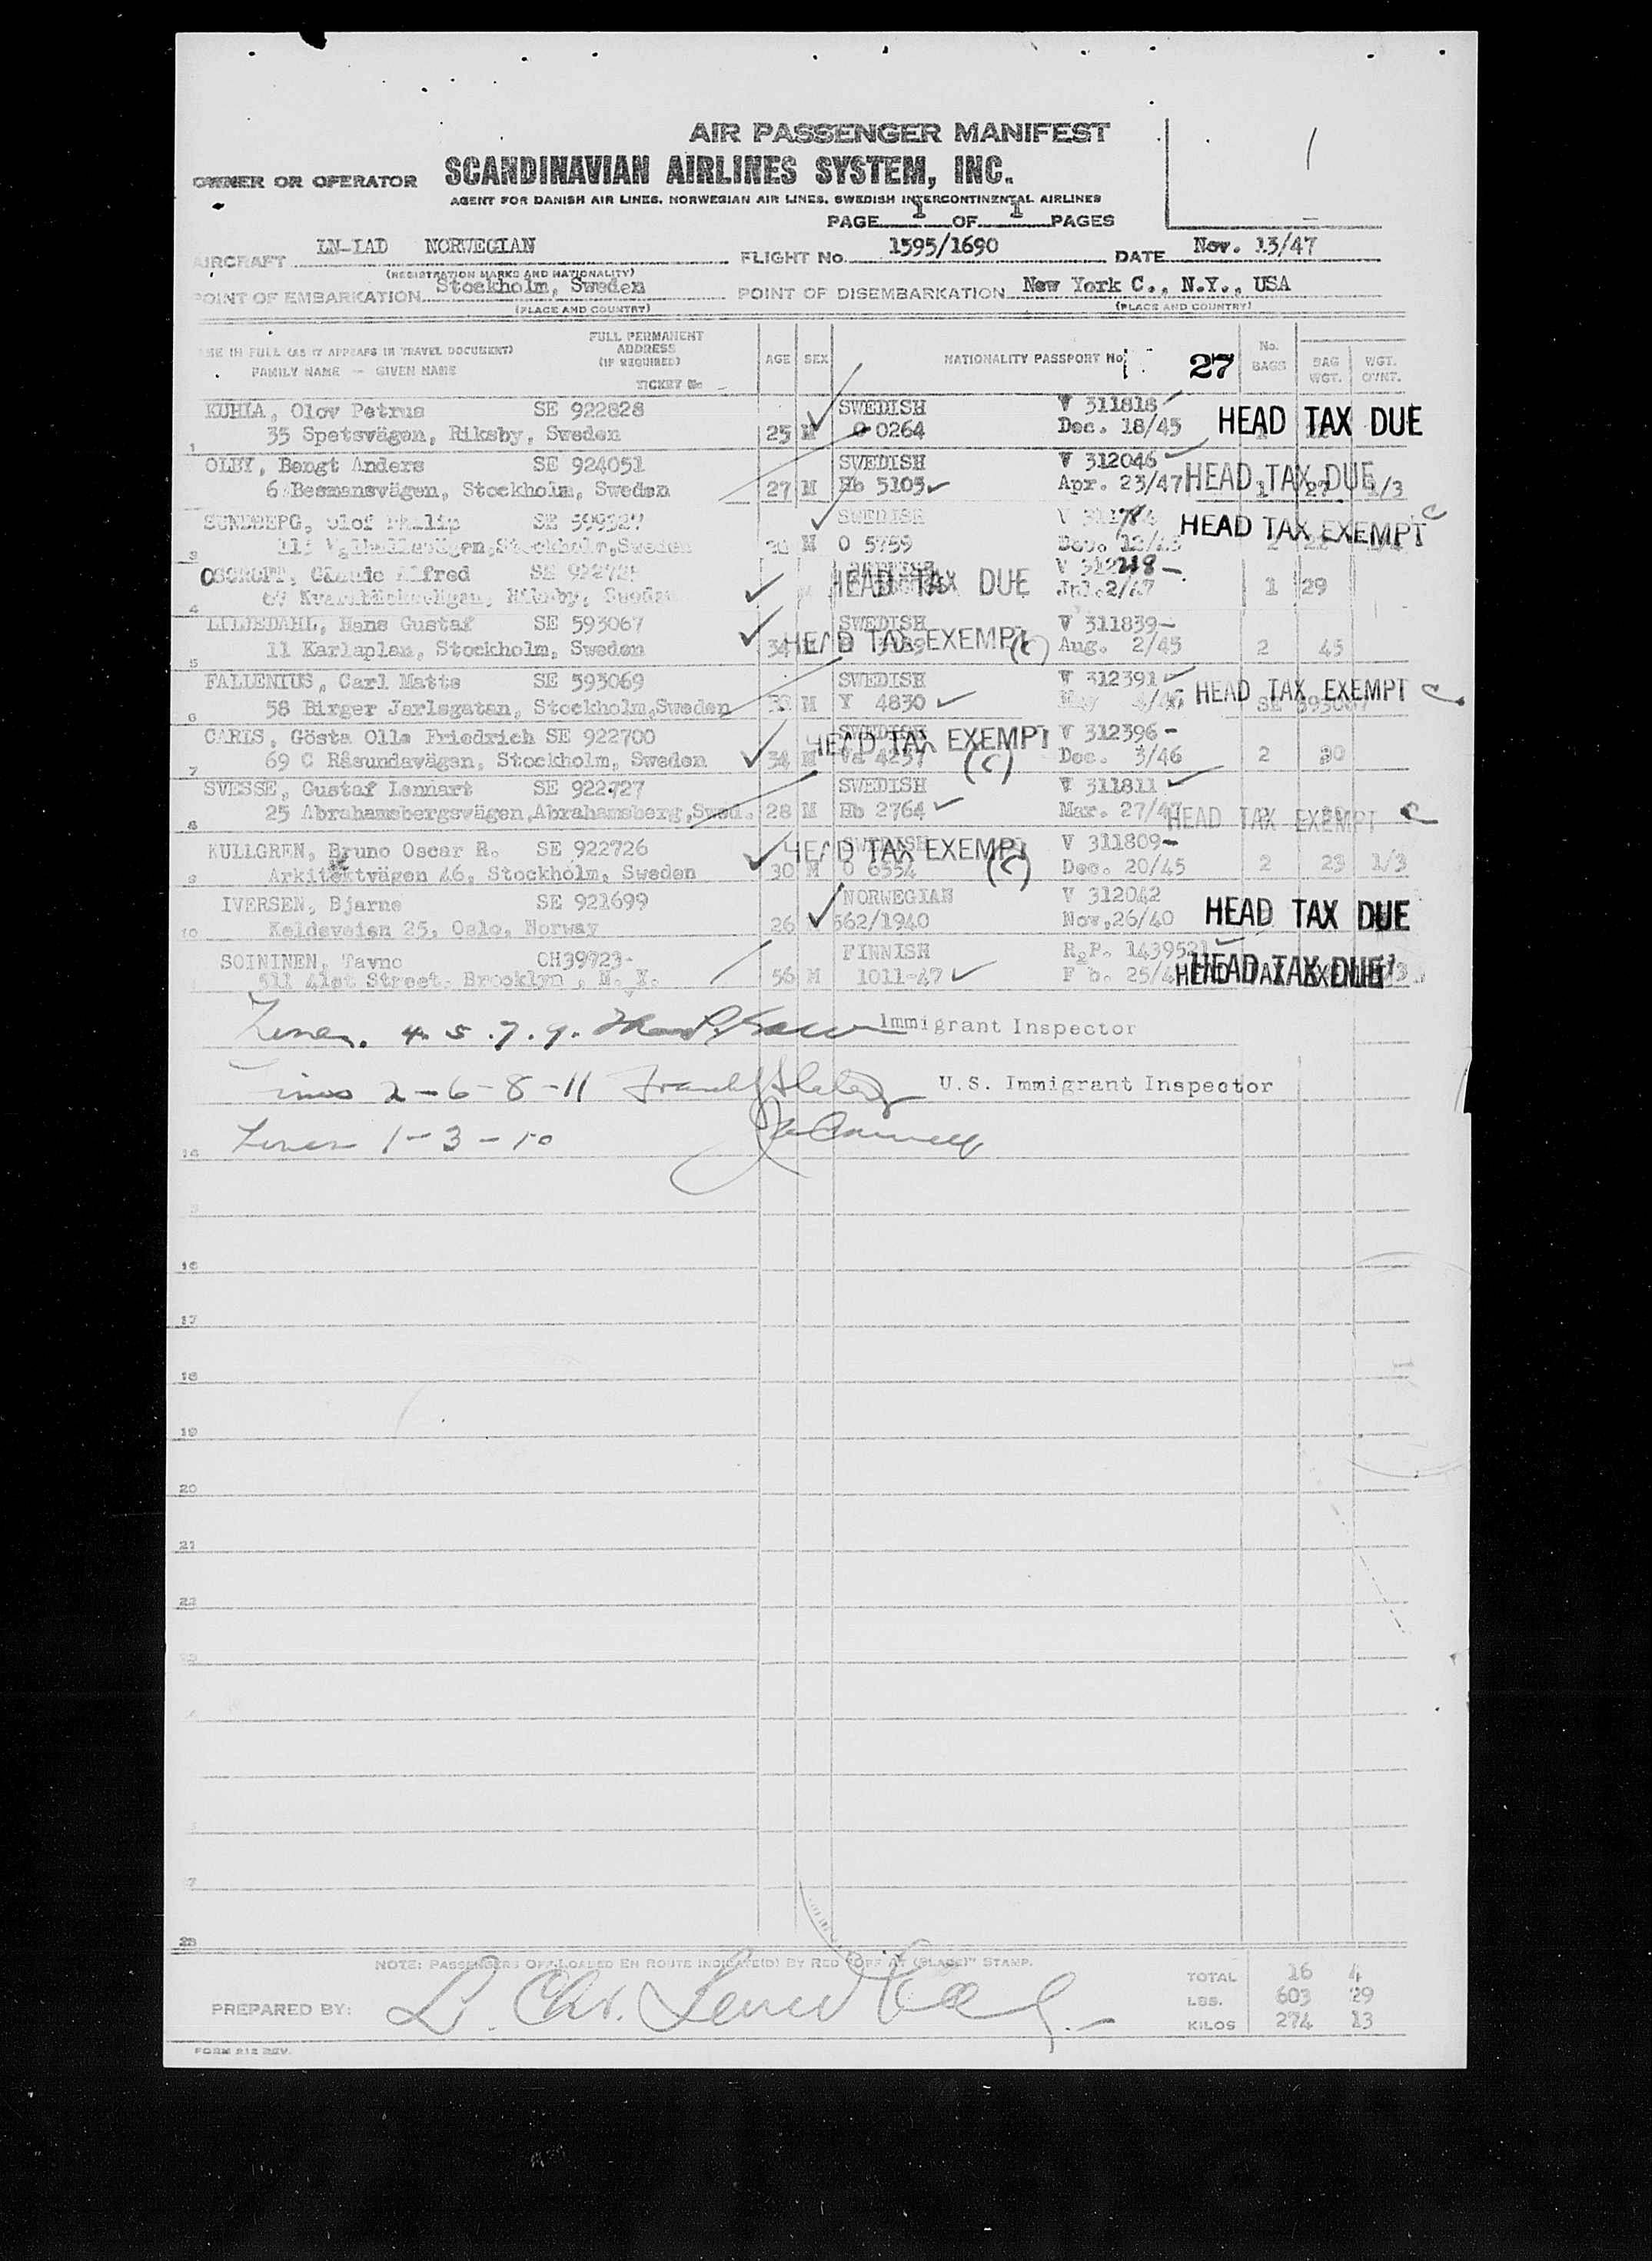 AIR PASSENGER MANIFEST
OWNER OR OPERATOR SCANDINAVIAN AIRLINES SYSTEM, INC.
AGENT FOR DANISH AIR LINES, NORWEGIAN AIR LINES, SWEDISH INTERCONTINENTAL AIRLINES
PAGE 1 OF 1 PAGES
AIRCRAFT LN-IAD NORWEGIAN FLIGHT No. 1595/1690 DATE Nov. 13/47
(REGISTRATION MARKS AND NATIONALITY)
POINT OF EMBARKATION Stockholm, Sweden POINT OF DISEMBARKATION New York C., N.Y., USA
(PLACE AND COUNTRY) (PLACE AND COUNTRY)
IN FULL (AS IT APPEARS IN TRAVEL DOCUMENT) FULL PERMANENT ADDRESS (IF REQUIRED) AGE SEX NATIONALITY PASSPORT No. 27 No. BAGS BAG WGT. WGT. OVWT.
FAMILY NAME — GIVEN NAME TICKET No
KUHLA, Olov Petrus SE 922828 SWEDISH V 311818
1 35 Spetsvägen, Riksby, Sweden 25 M O 0264 Dec. 18/45 HEAD TAX DUE
OLBY, Bengt Anders SE 924051 SWEDISH V 312046
6 Besmansvägen, Stockholm, Sweden 27 M Hb 5105 Apr. 23/47 HEAD TAX DUE 1 27 1/3
SUNDBERG, Olof Philip SE 599327 SWEDISH V
3 Valhallavägen, Stockholm, Sweden M O 5759 HEAD TAX EXEMPT C
OSCROFT, Claude Alfred HEAD TAX DUE
4 Riksby, Sweden Jul. 2/47 1 29
LILJEDAHL, Hans Gustaf SE 593067 SWEDISH V 311839
5 11 Karlaplan, Stockholm, Sweden 34 HEAD TAX EXEMPT (C) Aug. 2/45 2 45
FALLENIUS, Carl Matts SE 593069 SWEDISH V 312391
6 58 Birger Jarlsgatan, Stockholm, Sweden M Y 4830 May HEAD TAX EXEMPT C
CARLS, Gösta Olle Friedrich SE 922700 SWEDISH HEAD TAX EXEMPT V 312396
7 69 C Råsundavägen, Stockholm, Sweden 34 M Va 4257 (C) Dec. 3/46 2 30
SVESSE, Gustaf Lennart SE 922727 SWEDISH V 311811
8 25 Abrahamsbergsvägen, Abrahamsberg, Swed. 28 M Hb 2764 Mar. 27/47 HEAD TAX EXEMPT C
KULLGREN, Bruno Oscar R. SE 922726 SWEDISH HEAD TAX EXEMPT V 311809
9 Arkitektvägen 46, Stockholm, Sweden 30 M O 6554 (C) Dec. 20/45 2 23 1/3
IVERSEN, Bjarne SE 921699 NORWEGIAN V 312042
10 Keldeveien 25, Oslo, Norway 26 562/1940 Nov. 26/40 HEAD TAX DUE
SOININEN, Tavno OH39723 FINNISH R.P. 1439521
511 41st Street, Brooklyn, N. Y. 56 M 1011-47 HEAD TAX DUE
Lines 4. 5. 7. 9. Immigrant Inspector
Lines 2-6-8-11 U.S. Immigrant Inspector
Lines 1-3-10
14
16
17
18
19
20
21
22
NOTE: PASSENGERS OFF-LOADED EN ROUTE INDICATE(D) BY RED "OFF AT (PLACE)" STAMP.
TOTAL 16 4
PREPARED BY: LBS. 603 29
KILOS 274 13
FORM 212 REV.